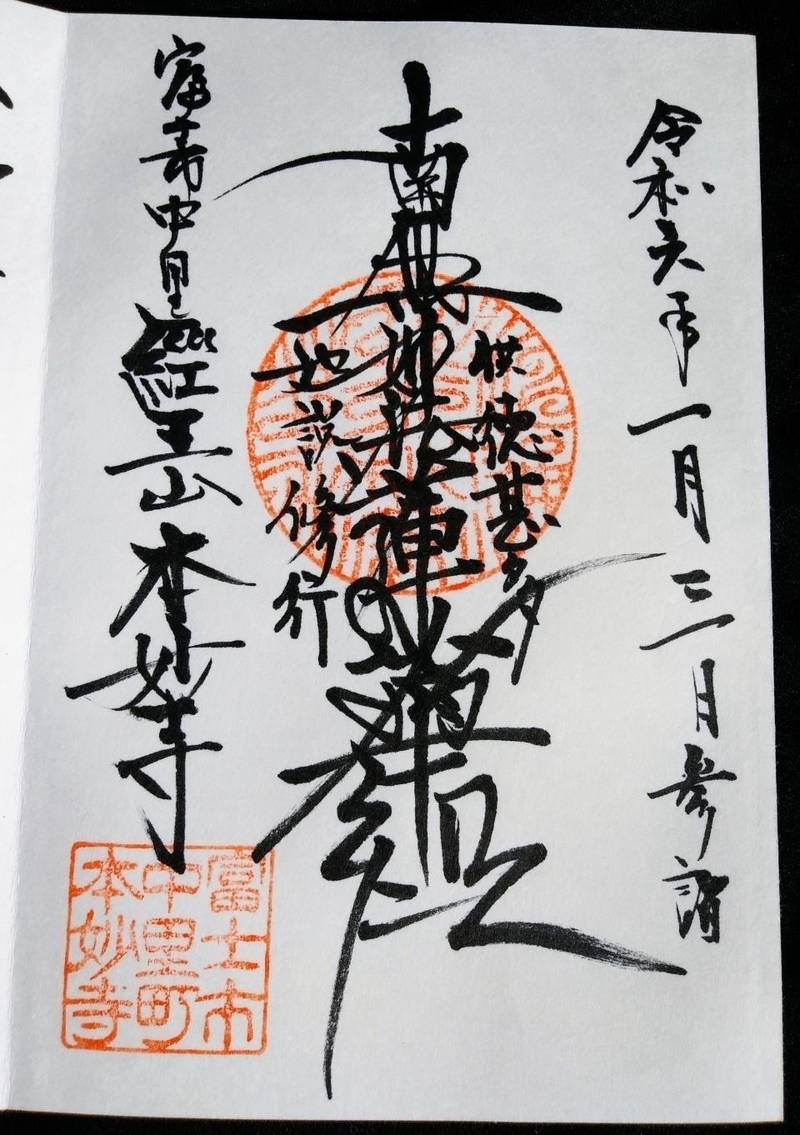 令和六年一月三日参詣
功徳甚多
南無妙法蓮華経
如説修行
富士市中里
王山本妙寺
富士市
中里町
本妙寺